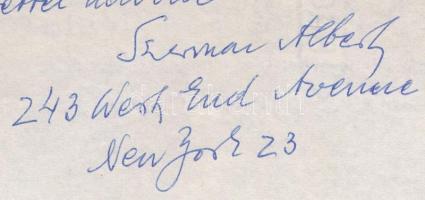 Szirmai Albert
243 West End Avenue
New York 23